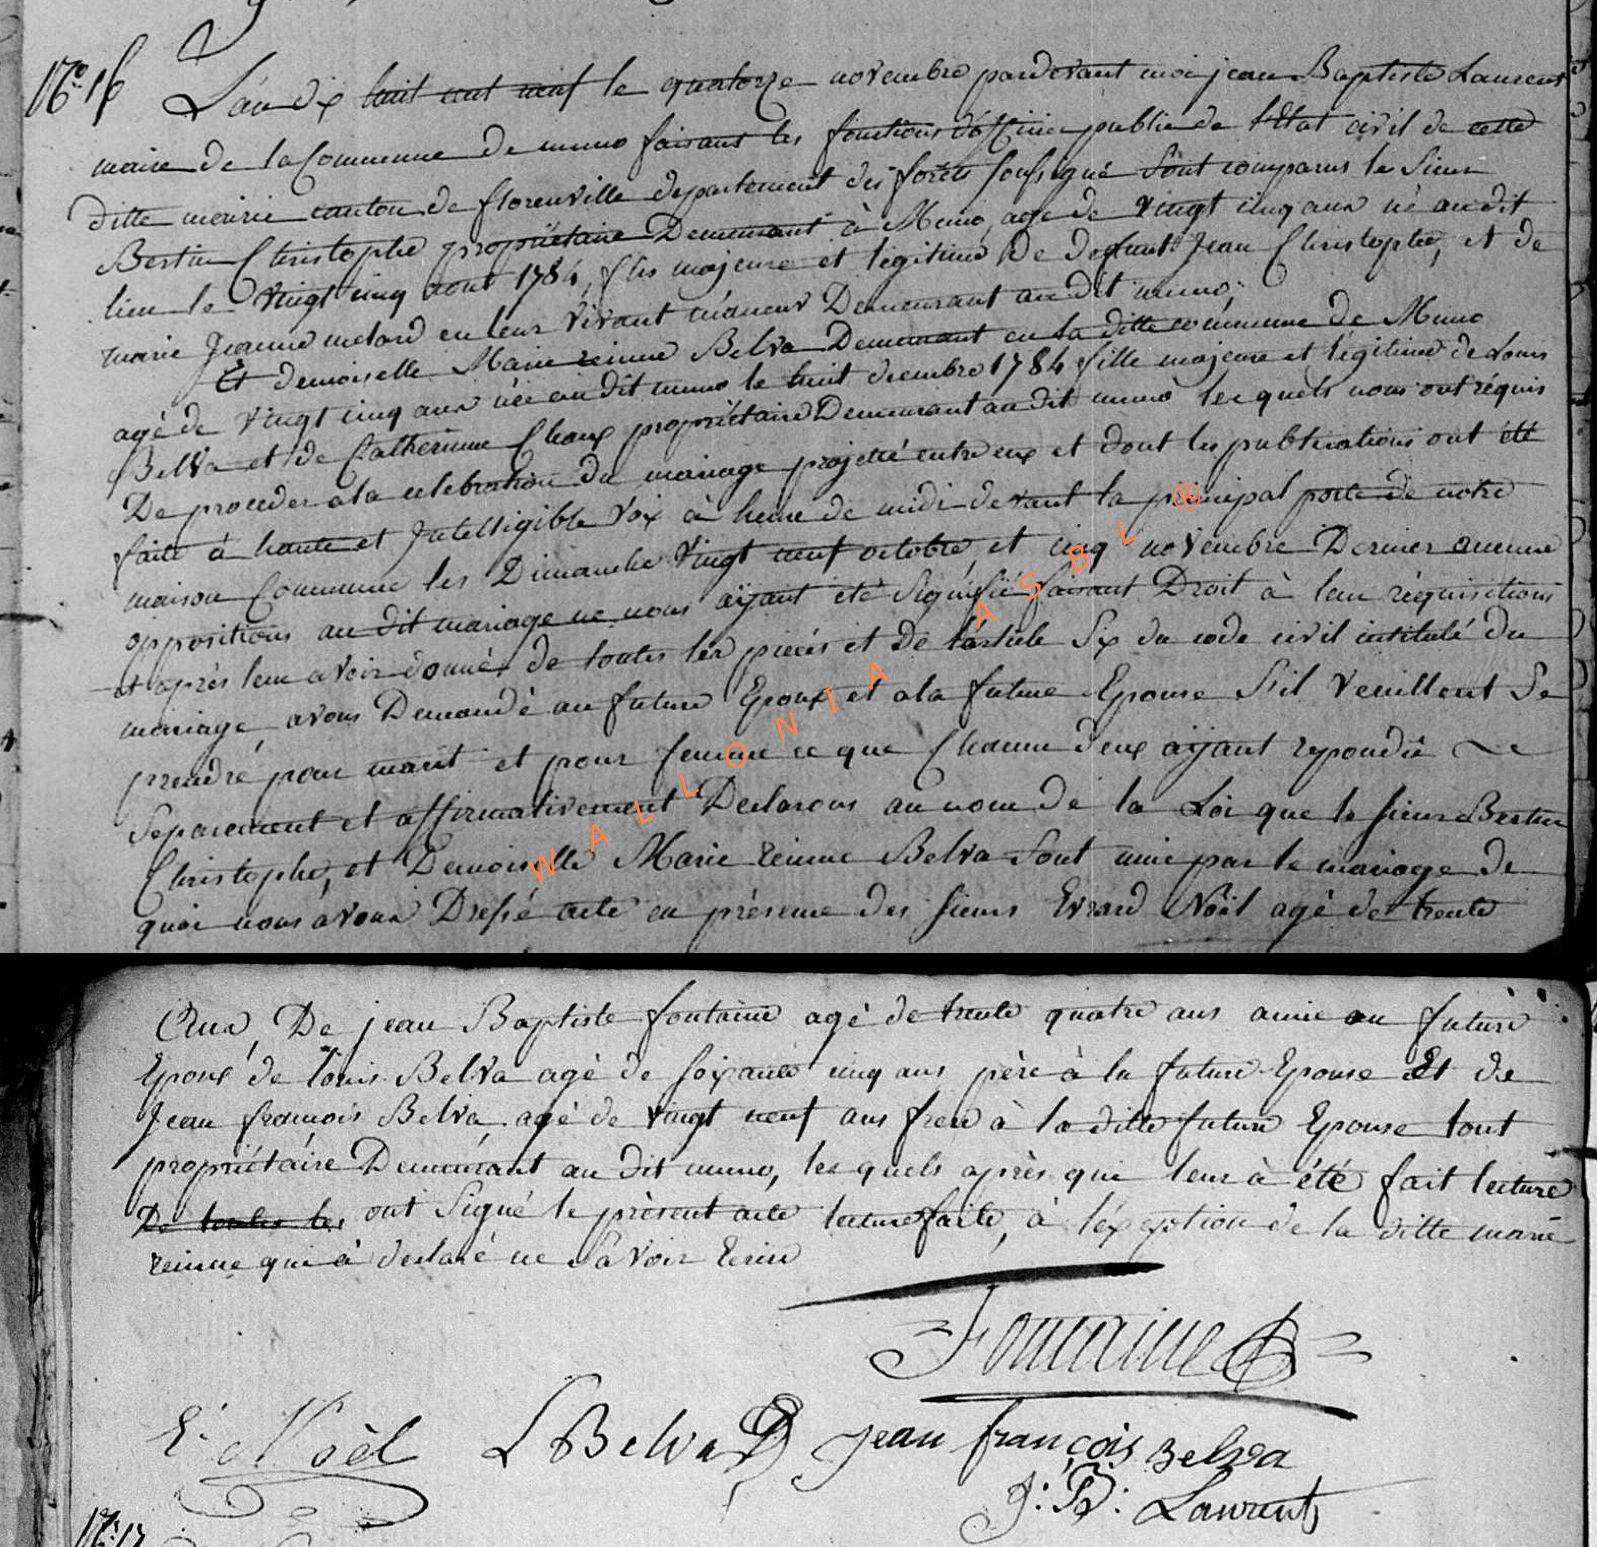 N° 16 L'an dix huit cent neuf le quatorze novembre pardevant moi jean Baptiste Laurent
maire de la Commune de muno faisant les fonctions d'officier public de l'Etat civil de cette
ditte mairie canton de florenville departement des forêts sousigné sont comparus le sieur
Bertin Christophe propriétaire Demeurant à Muno, agé de vingt cinq ans né au dit
lieu le vingt cinq aout 1784, fils majeure et légitime De deffunt Jean Christophe, et de
marie Jeanne melard en leur vivant Demeurant au dit muno;
Et demoiselle Marie reinne Belva Demeurant en la ditte commune de Muno
agé de vingt cinq ans née au dit muno le huit decembre 1784 fille majeure et légitime de Louis
Belva et de Catherinne Chaux propriétaire Demeurant au dit muno les quels nous ont réquis
De proceder a la celebration du mariage projetté entre eux et dont les publications ont été
faite à haute et Intelligible voix à heure de midi devant la principal porte de notre
maison Commune les Dimanche vingt neuf octobre, et cinq novembre Dernier aucune
oppositions au dit mariage ne nous aÿant été signifié faisant Droit à leur réquisitions
et après leur avoir donné de toutes les pieces et de l'article six du code civil intitulé du
mariage, avons Demandé au future Epoux et a la future Epouse s'il veuillent se
prendre pour marit et pour femme ce que Chacun d'eux aÿant repondu
séparement et affirmativement Declarons au nom de la Loi que le sieur Bertin
Christophe, et Demoiselle Marie reinne Belva sont unie par le mariage de
quoi nous avons Dressé acte en présence des sieurs Evrard Noël agé de trente
WALLONIA ASBL ®
Ans, De jean Baptiste fontaine agé de trente quatre ans amie au future
Epoux de louis Belva agé de soixante cinq ans père à la future Epouse Et de
Jean françois Belva agé de vingt neuf ans frere à la ditte future Epouse tout
propriétaire Demeurant au dit muno, les quels après qui leur à été fait lecture
De toutes les ont signé le présent acte lecture faite, à l'exception de la ditte marie
reinne qui à declaré ne savoir Ecrire
Fontaine
E. Noël L Belva Jean françois Belva
J: B: Laurent
N° 17